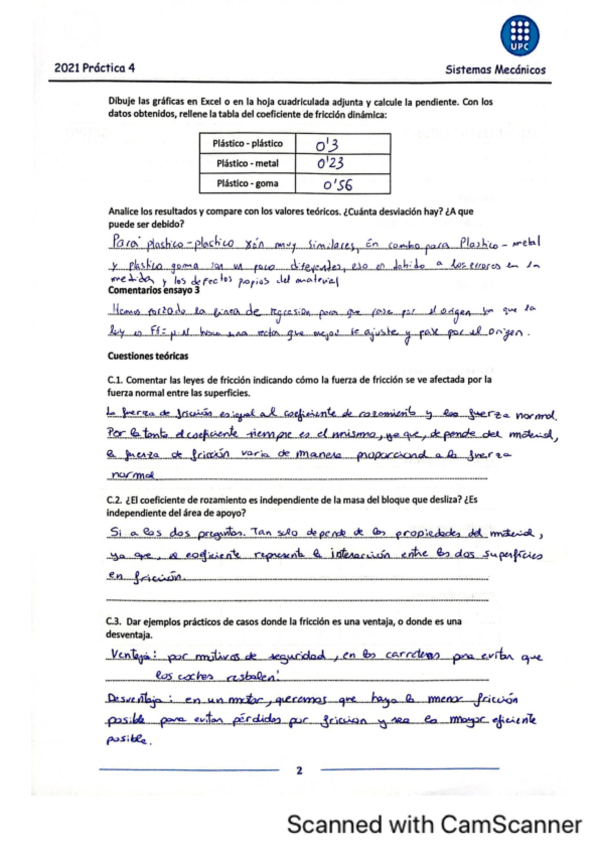 UPC
2021 Práctica 4 Sistemas Mecánicos
Dibuje las gráficas en Excel o en la hoja cuadriculada adjunta y calcule la pendiente. Con los
datos obtenidos, rellene la tabla del coeficiente de fricción dinámica:
Plástico - plástico 0'3
Plástico - metal 0'23
Plástico - goma 0'56
Analice los resultados y compare con los valores teóricos. ¿Cuánta desviación hay? ¿A que
puede ser debido?
Para plastico-plactico són muy similares, En cambio para Plastico - metal
y plastico goma son un poco diferentes, eso en debido a los errores en la
medida y los defectos popios del material
Comentarios ensayo 3
Hemos forzado la linea de regresión para que pase por el origen ya que la
ley es Ff= μ·N hace una recta que mejor se ajuste y pase por el origen.
Cuestiones teóricas
C.1. Comentar las leyes de fricción indicando cómo la fuerza de fricción se ve afectada por la
fuerza normal entre las superficies.
La fuerza de fricción es igual al coeficiente de rozamiento y la fuerza normal.
Por lo tanto el coeficiente siempre es el mismo, ya que, depende del material,
la fuerza de fricción varia de manera proporcional a la fuerza
normal
C.2. ¿El coeficiente de rozamiento es independiente de la masa del bloque que desliza? ¿Es
independiente del área de apoyo?
Si a las dos preguntas. Tan solo depende de las propiedades del material,
ya que, el coeficiente representa la interacción entre las dos superfícies
en fricción.
C.3. Dar ejemplos prácticos de casos donde la fricción es una ventaja, o donde es una
desventaja.
Ventaja: por motivos de seguridad, en las carreteras para evitar que
los coches resbalen.
Desventaja: en un motor, queremos que haya la menor fricción
posible para evitar pérdidas por friccion y sea lo mayor eficiente
posible.
2
Scanned with CamScanner